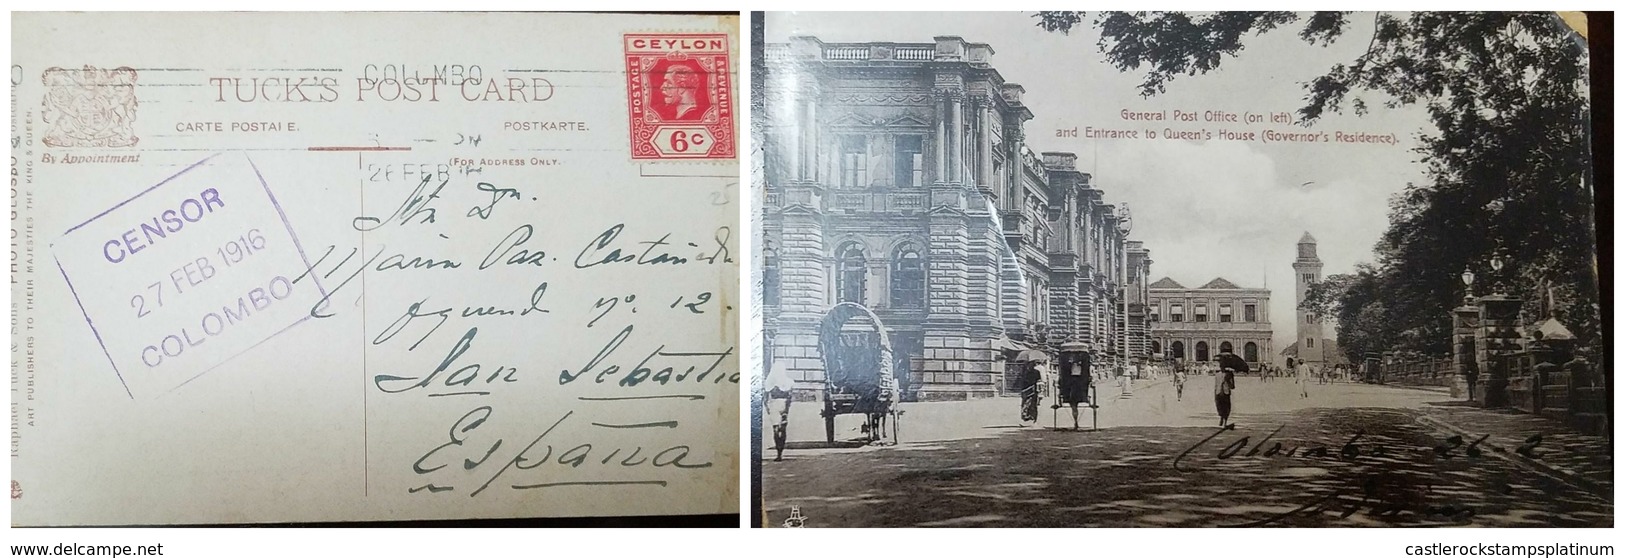 CEYLON
POSTAGE
& REVENUE
6c
COLOMBO
TUCK'S POST CARD
CARTE POSTALE.
POSTKARTE.
By Appointment
(FOR ADDRESS ONLY.
26 FEB
CENSOR
27 FEB 1916
COLOMBO
RAPHAEL TUCK & SONS' "PHOTO GLOSSO"
ART PUBLISHERS TO THEIR MAJESTIES THE KING & QUEEN.
25
Maria Paz. Castañeda
nº. 12.
San Sebastia
España
General Post Office (on left)
and Entrance to Queen's House (Governor's Residence).
Colombo 26-2
www.delcampe.net
castlerockstampsplatinum